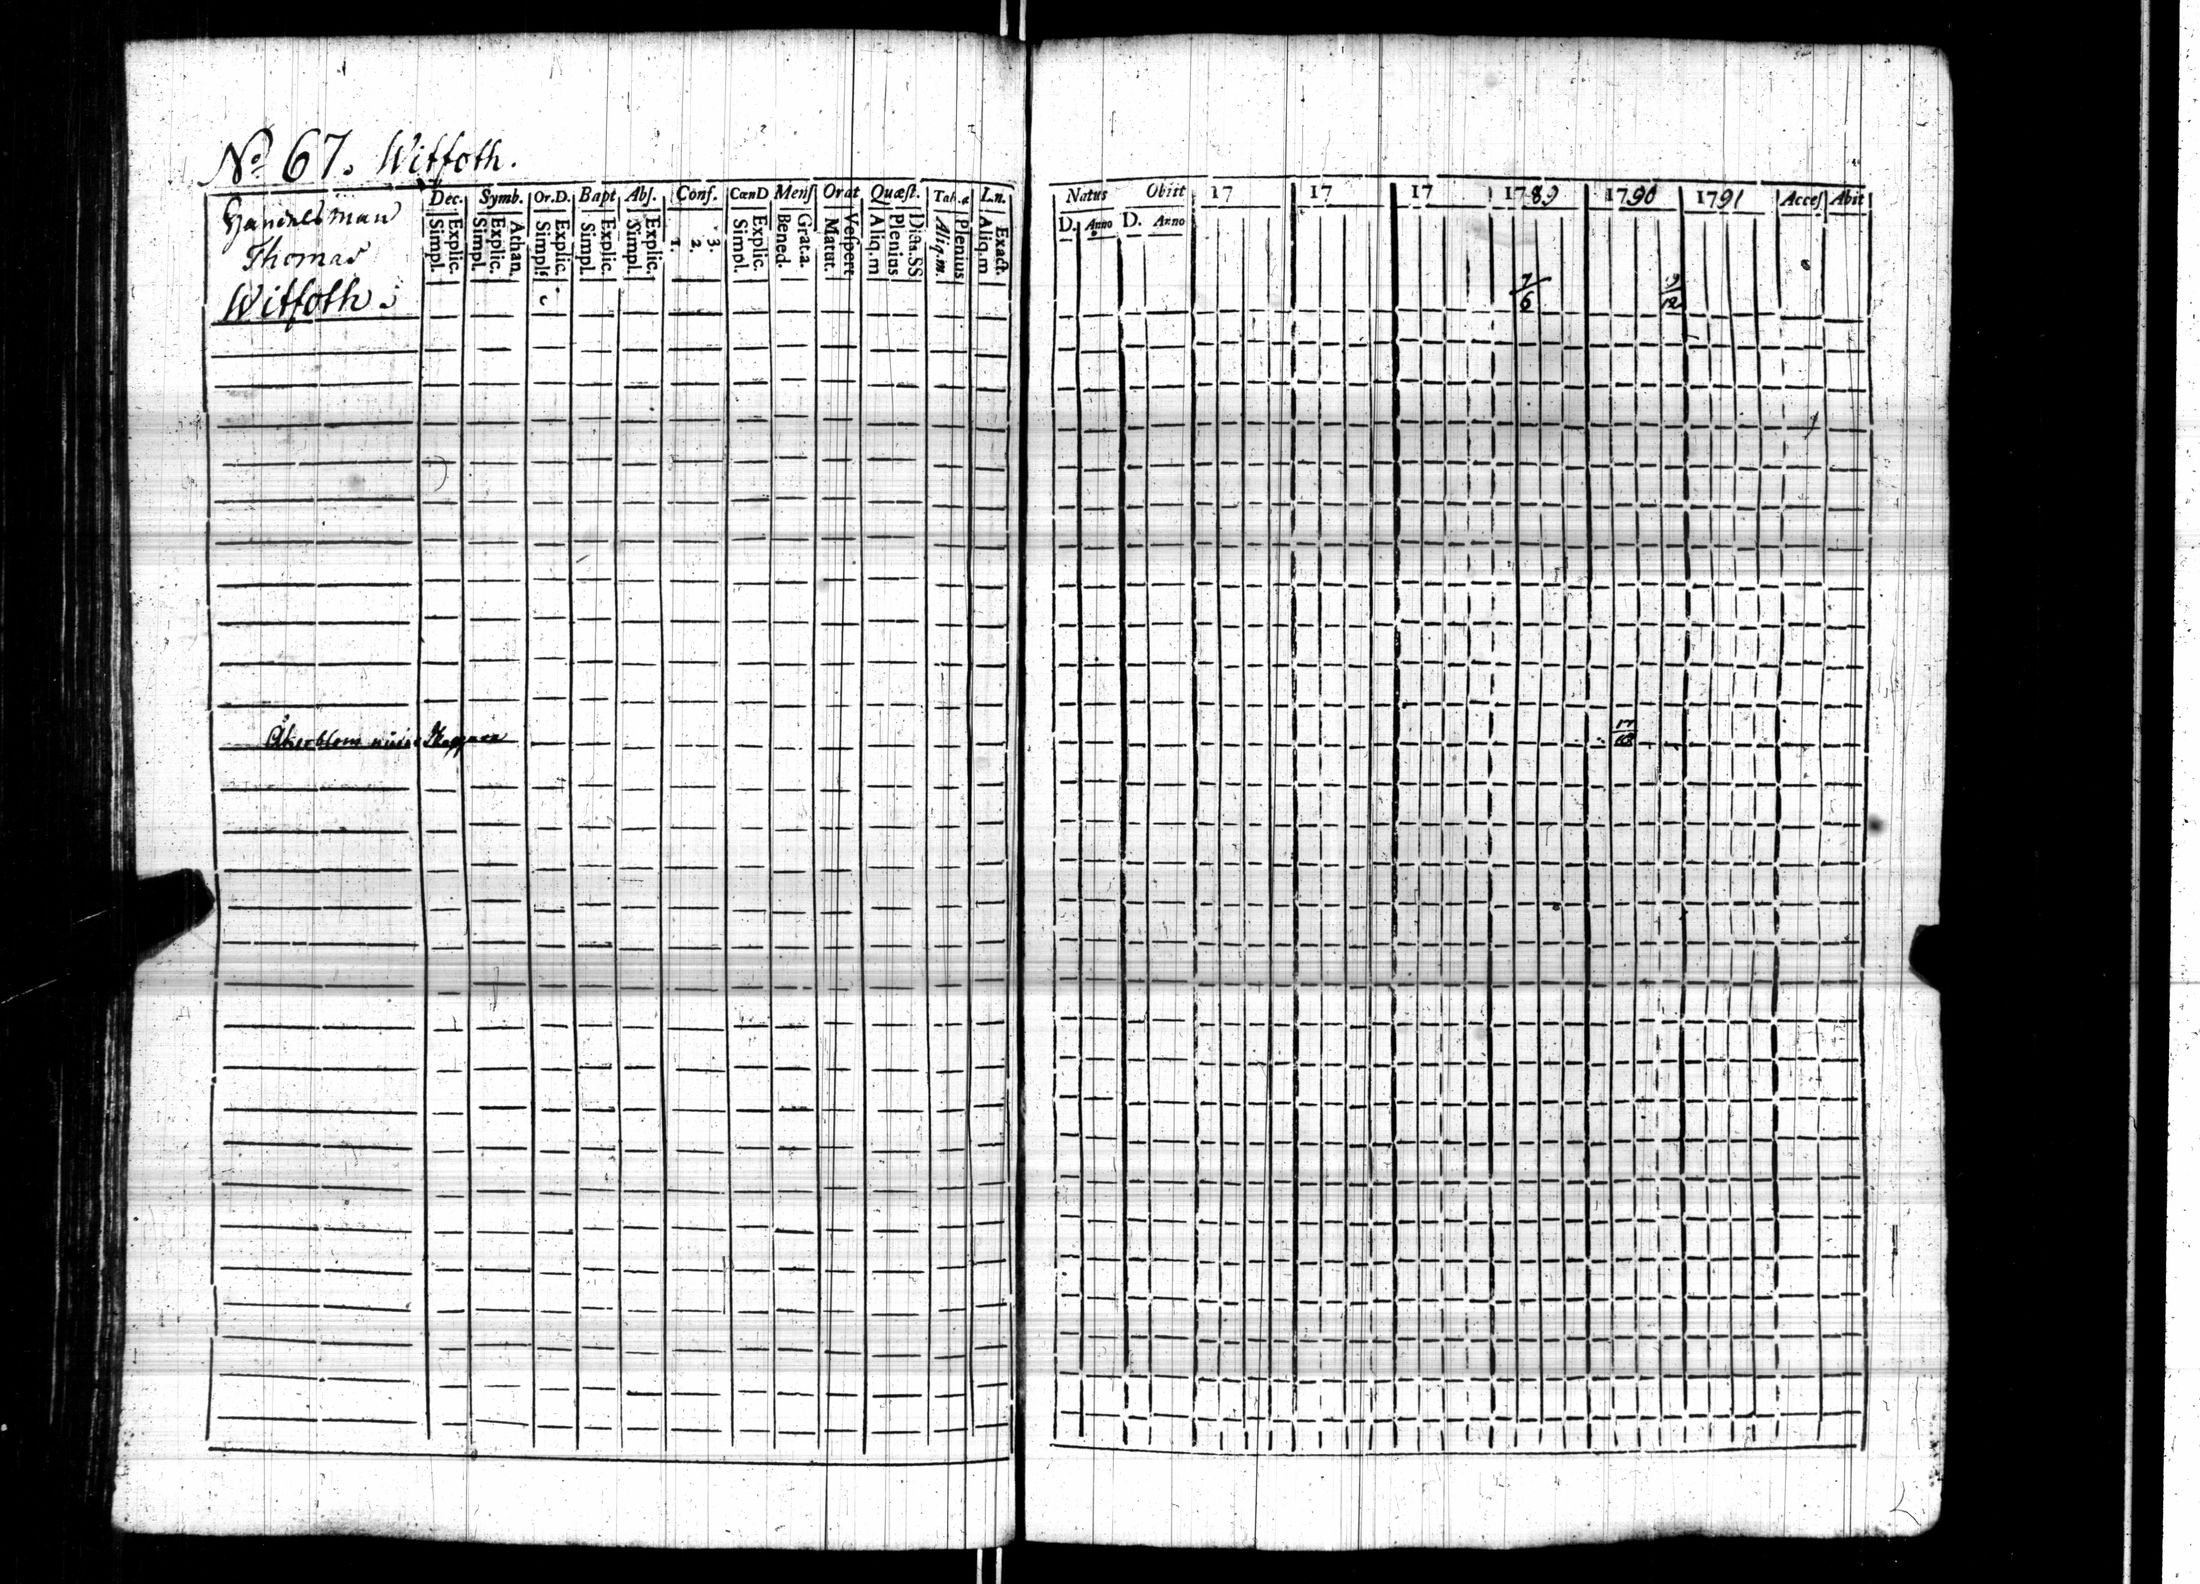 No 67. Witfoth.
Dec. Symb. Or.D. Bapt Abſ. Conf. CœnD Menſ Orat Quæſt. Tab.æ Ln.
Explic. Simpl. Athan. Explic. Simpl. Explic. Simpl. Explic. Simpl. Explic. Simpl. 3. 2. 1. Explic. Simpl. Grat.a. Bened. Veſpert Matut. Dicta.SS Plenius Aliq.m Plenius Aliq.m. Exact. Aliq.m
Handelsman
Thomas
Witfoth.
Åkerblom
Natus Obiit 17 17 17 1789 1790 1791 Acceſ Abit
D. Anno D. Anno
7/6 9/12
17/18